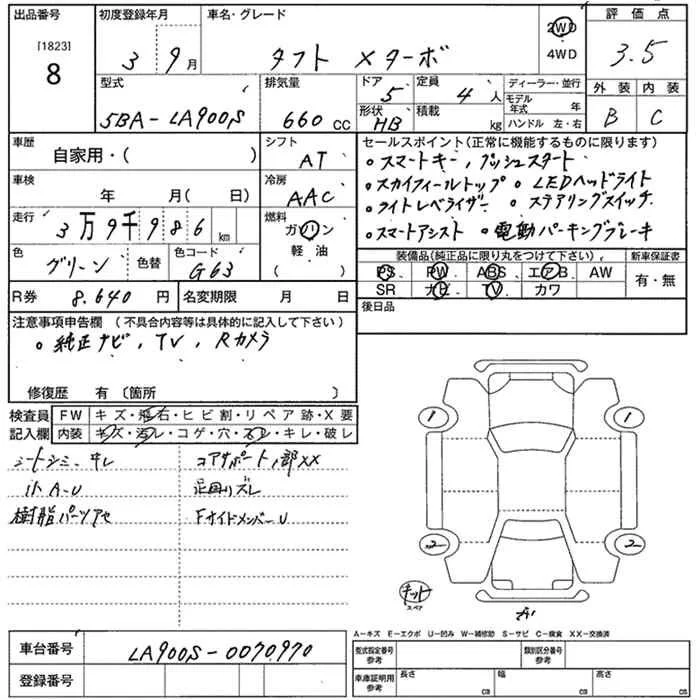 出品番号 [1823] 8
初度登録年月 3 9月
車名・グレード タフト Xターボ
2WD 4WD
評価点 3.5
外装 内装
B C
型式 5BA-LA900S
排気量 660 CC
ドア 5
形状 HB
定員 4人
積載 kg
ディーラー・並行
モデル年式 年
ハンドル 左・右
車歴 自家用・( )
シフト AT
セールスポイント(正常に機能するものに限ります)
・スマートキー、プッシュスタート
・スカイフィールトップ ・LEDヘッドライト
・ライトレベライザー ・ステアリングスイッチ
・スマートアシスト ・電動パーキングブレーキ
車検 年 月( 日)
冷房 AAC
走行 3万9千986 km
燃料 ガソリン 軽油 ( )
色 グリーン 色替
色コード G63
装備品(純正品に限り丸をつけて下さい)
PS、 PW、 ABS、 エアB、 AW
SR ナビ、 TV、 カワ
新車保証書
有・無
R券 8,640 円
名変期限 月 日
後日品
注意事項申告欄 (不具合内容等は具体的に記入して下さい)
・純正ナビ、TV、Rカメラ
修復歴 有 〔箇所 〕
検査員記入欄
FW キズ・飛石・ヒビ割・リペア跡・X要
内装 キズ・汚レ・コゲ・穴・スレ・キレ・破レ
シートシミ、キレ コアサポート、部XX
小A.U 足回リズレ
樹脂パーツアセ FサイドメンバーU
1 1
2 2
キット
スペア
A-キズ E-エクボ U-凹み W-補修跡 S-サビ C-腐食 XX-交換済
車台番号 LA900S-0070970
登録番号
型式指定番号 参考
類別区分番号 参考
車庫証明用 参考 長さ cm 幅 cm 高さ cm